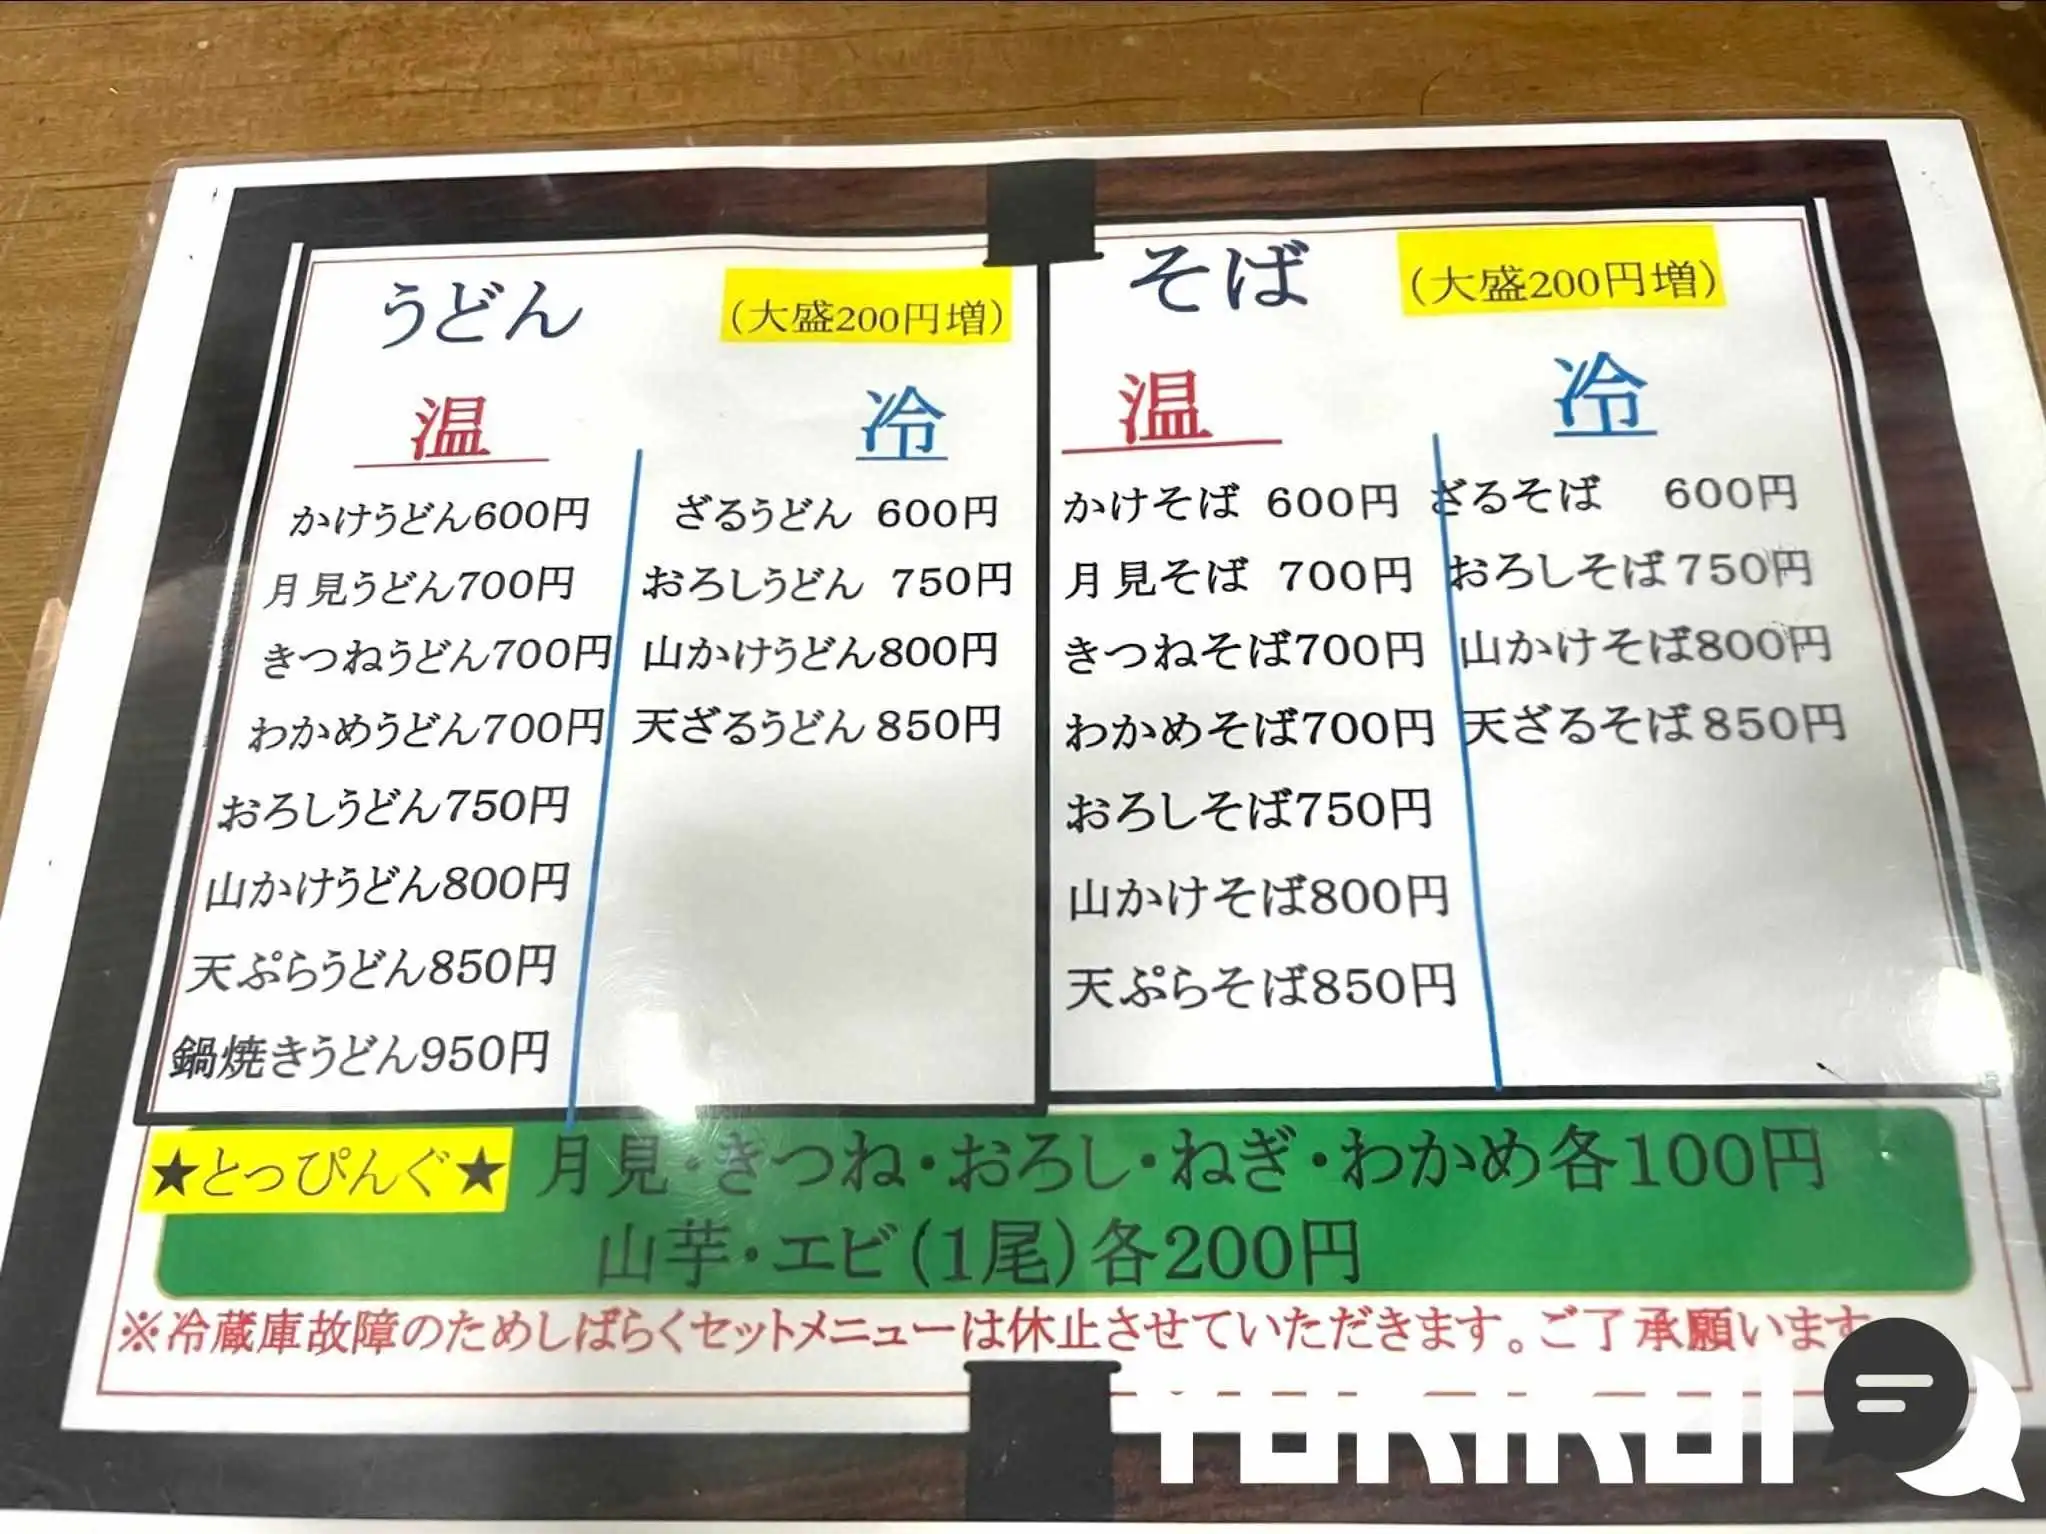 うどん
(大盛200円増)
温
かけうどん600円
月見うどん700円
きつねうどん700円
わかめうどん700円
おろしうどん750円
山かけうどん800円
天ぷらうどん850円
鍋焼きうどん950円
冷
ざるうどん 600円
おろしうどん 750円
山かけうどん800円
天ざるうどん 850円
そば
(大盛200円増)
温
かけそば 600円
月見そば 700円
きつねそば700円
わかめそば700円
おろしそば750円
山かけそば800円
天ぷらそば850円
冷
ざるそば 600円
おろしそば750円
山かけそば800円
天ざるそば850円
★とっぴんぐ★ 月見・きつね・おろし・ねぎ・わかめ各100円
山芋・エビ(1尾)各200円
※冷蔵庫故障のためしばらくセットメニューは休止させていただきます。ご了承願います